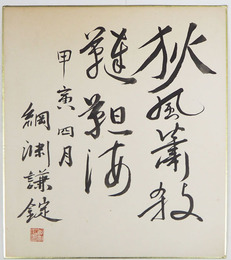 狄風蕭殺
韃靼海
甲寅四月
綱淵謙錠